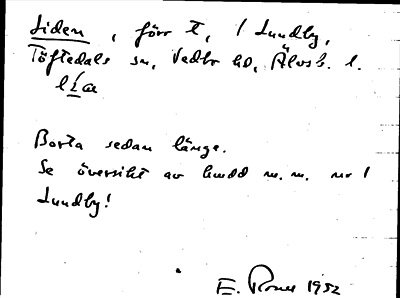 Liden, förr t, 1 Lundby,
Töftedals sn, Vedbo hd, Älvsb. l.
Borta sedan länge.
Se översikt av hmdd m.m. nr 1
Lundby!
E. 1952